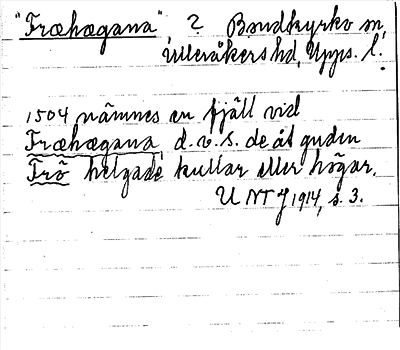 "Fræhægana" ? Bondkyrko sn,
Ulleråkers hd, Upps. l.
1504 nämnes en fjäll vid
Fræhægana, d.v.s. de åt guden
Frö helgade kullar eller högar.
UNTJ 1914, s. 3.